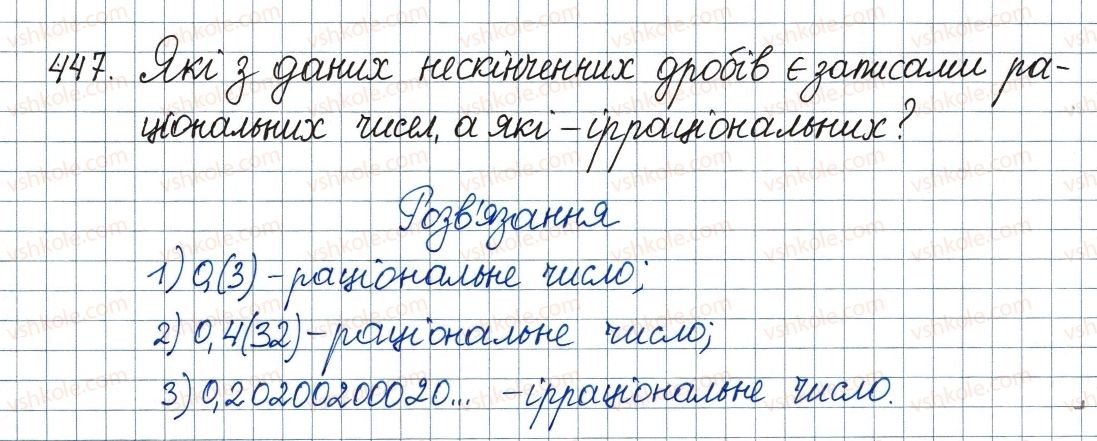 447. Які з даних нескінченних дробів є записами ра-
ціональних чисел, а які – ірраціональних?
Розв'язання
1) 0,(3) – раціональне число;
2) 0,4(32) – раціональне число;
3) 0,202002000020... – ірраціональне число.